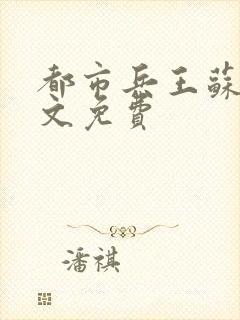 都市兵王蘇
文免費
潘祺